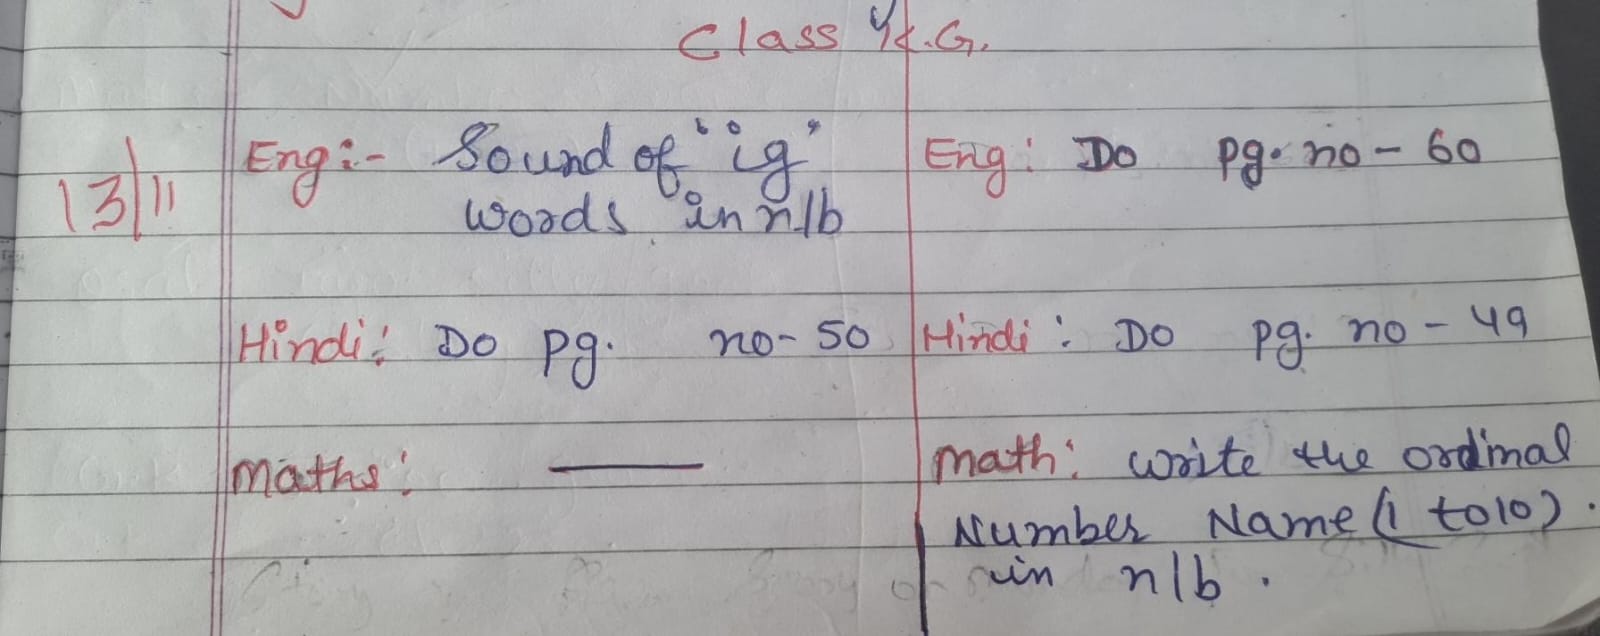 Class U.K.G.
13/11
Eng:- Sound of "ig"
words in n/b
Hindi: Do pg. no-50
Maths: —
Eng: Do pg. no-60
Hindi: Do pg. no-49
Math: write the ordinal
Number Name (1 to 10).
in n/b.